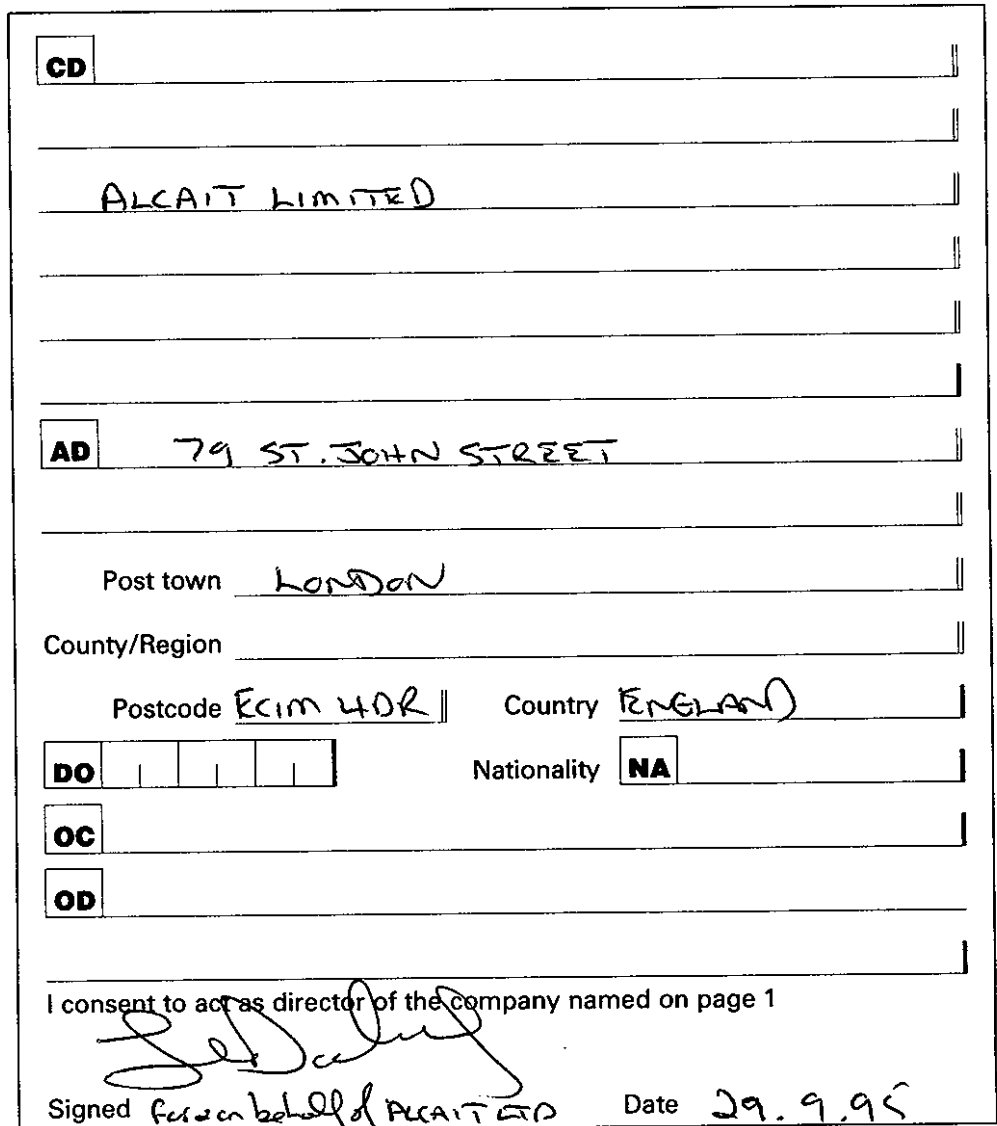 CD
ALCAIT LIMITED
AD 79 ST. JOHN STREET
Post town LONDON
County/Region
Postcode EC1M 4DR Country ENGLAND
DO Nationality NA
OC
OD
I consent to act as director of the company named on page 1
Signed For & on behalf of ALCAIT LTD Date 29.9.95